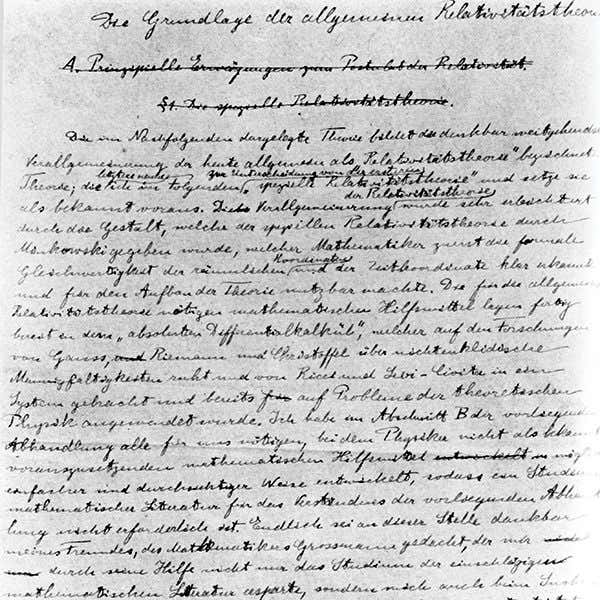 Die Grundlage der allgemeinen Relativitätstheorie
A. Prinzipielle Erwägungen zum Postulat der Relativität.
§1. Die spezielle Relativitätstheorie.
Die im Nachfolgenden dargelegte Theorie bildet die denkbar weitgehendste
Verallgemeinerung der heute allgemein als „Relativitätstheorie" bezeichneten
letztere nenne zur Unterscheidung von der ersteren
Theorie; die ich im folgenden „spezielle Relativitätstheorie" und setze sie
der Relativitätstheorie
als bekannt voraus. Die Verallgemeinerung wurde sehr erleichtert
durch die Gestalt, welche der speziellen Relativitätstheorie durch
Minkowski gegeben wurde, welcher Mathematiker zuerst die formale
Koordinaten
Gleichwertigkeit der räumlichen und der Zeitkoordinate klar erkannte
und für den Aufbau der Theorie nutzbar machte. Die für die allgemeine
Relativitätstheorie nötigen mathematischen Hilfsmittel lagen fertig
bereit in dem „absoluten Differentialkalkül", welcher auf den Forschungen
von Gauss, und Riemann und Christoffel über nichteuklidische
Mannigfaltigkeiten ruht und von Ricci und Levi-Civita in ein
System gebracht und bereits auf Probleme der theoretischen
Physik angewendet wurde. Ich habe im Abschnitt B der vorliegenden
Abhandlung alle für uns nötigen, bei dem Physiker nicht als bekannt
vorauszusetzenden mathematischen Hilfsmittel entwickelt in mögl
einfacher und durchsichtiger Weise entwickelt, sodass ein Studium
mathematischer Literatur für das Verständnis der vorliegenden Abhand
lung nicht erforderlich ist. Endlich sei an dieser Stelle dankbar
meines Freundes, des Mathematikers Grossmann gedacht, der mir
durch seine Hilfe nicht nur das Studium der einschlägigen
mathematischen Literatur ersparte, sondern mich auch beim Suchen